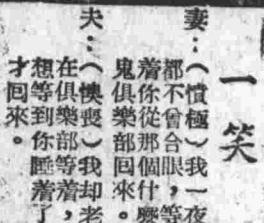 一笑
妻：（憤極）我一夜
都不曾合眼，等
着你從那個什麽
鬼俱樂部回來。
夫：（懊喪）我却老
在俱樂部等着，
想等到你睡着了
才回來。